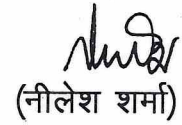 (नीलेश शर्मा)